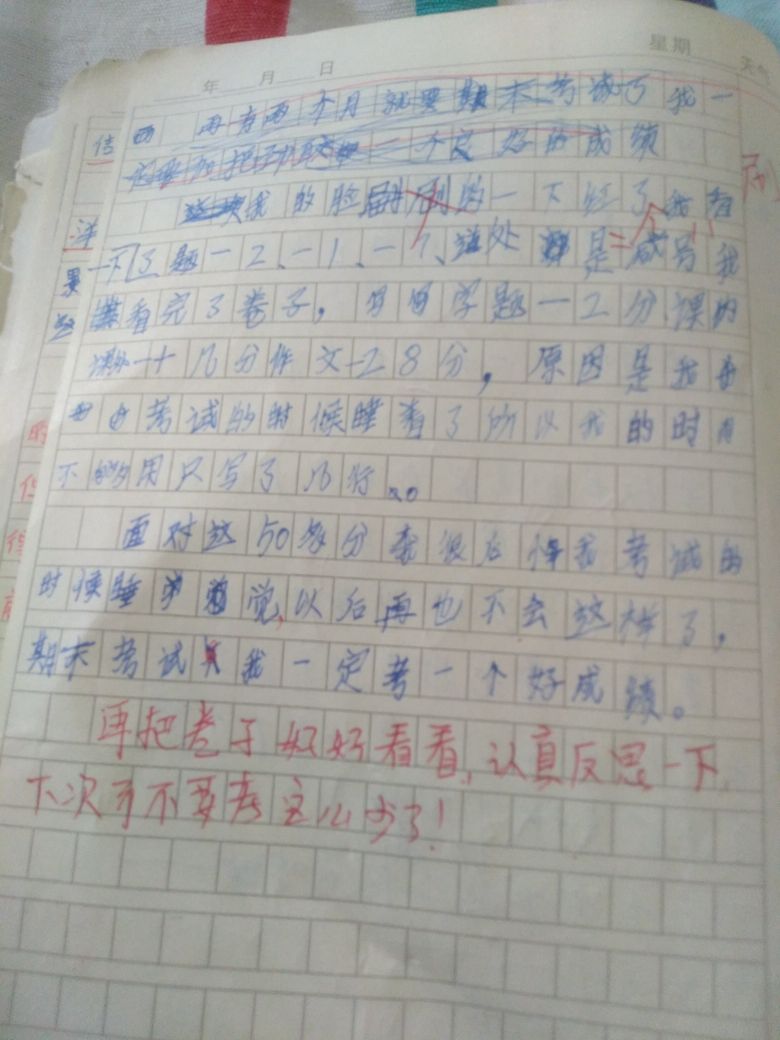 年 月 日 星期 天气
再有两个月就要期末考试了我一
一个好的成绩
我的脸刷的一下红了我看
一下了题一2、一1、一7、处是减号我
看完了卷子，写字题一2分课的
课外一十几分作文-28分，原因是我
考试的时候睡着了所以我的时间
不够用只写了几行。
面对这50多分我很后悔我考试的
时候睡觉，以后再也不会这样了，
期末考试我一定考一个好成绩。
再把卷子好好看看，认真反思一下
下次可不要考这么少了！